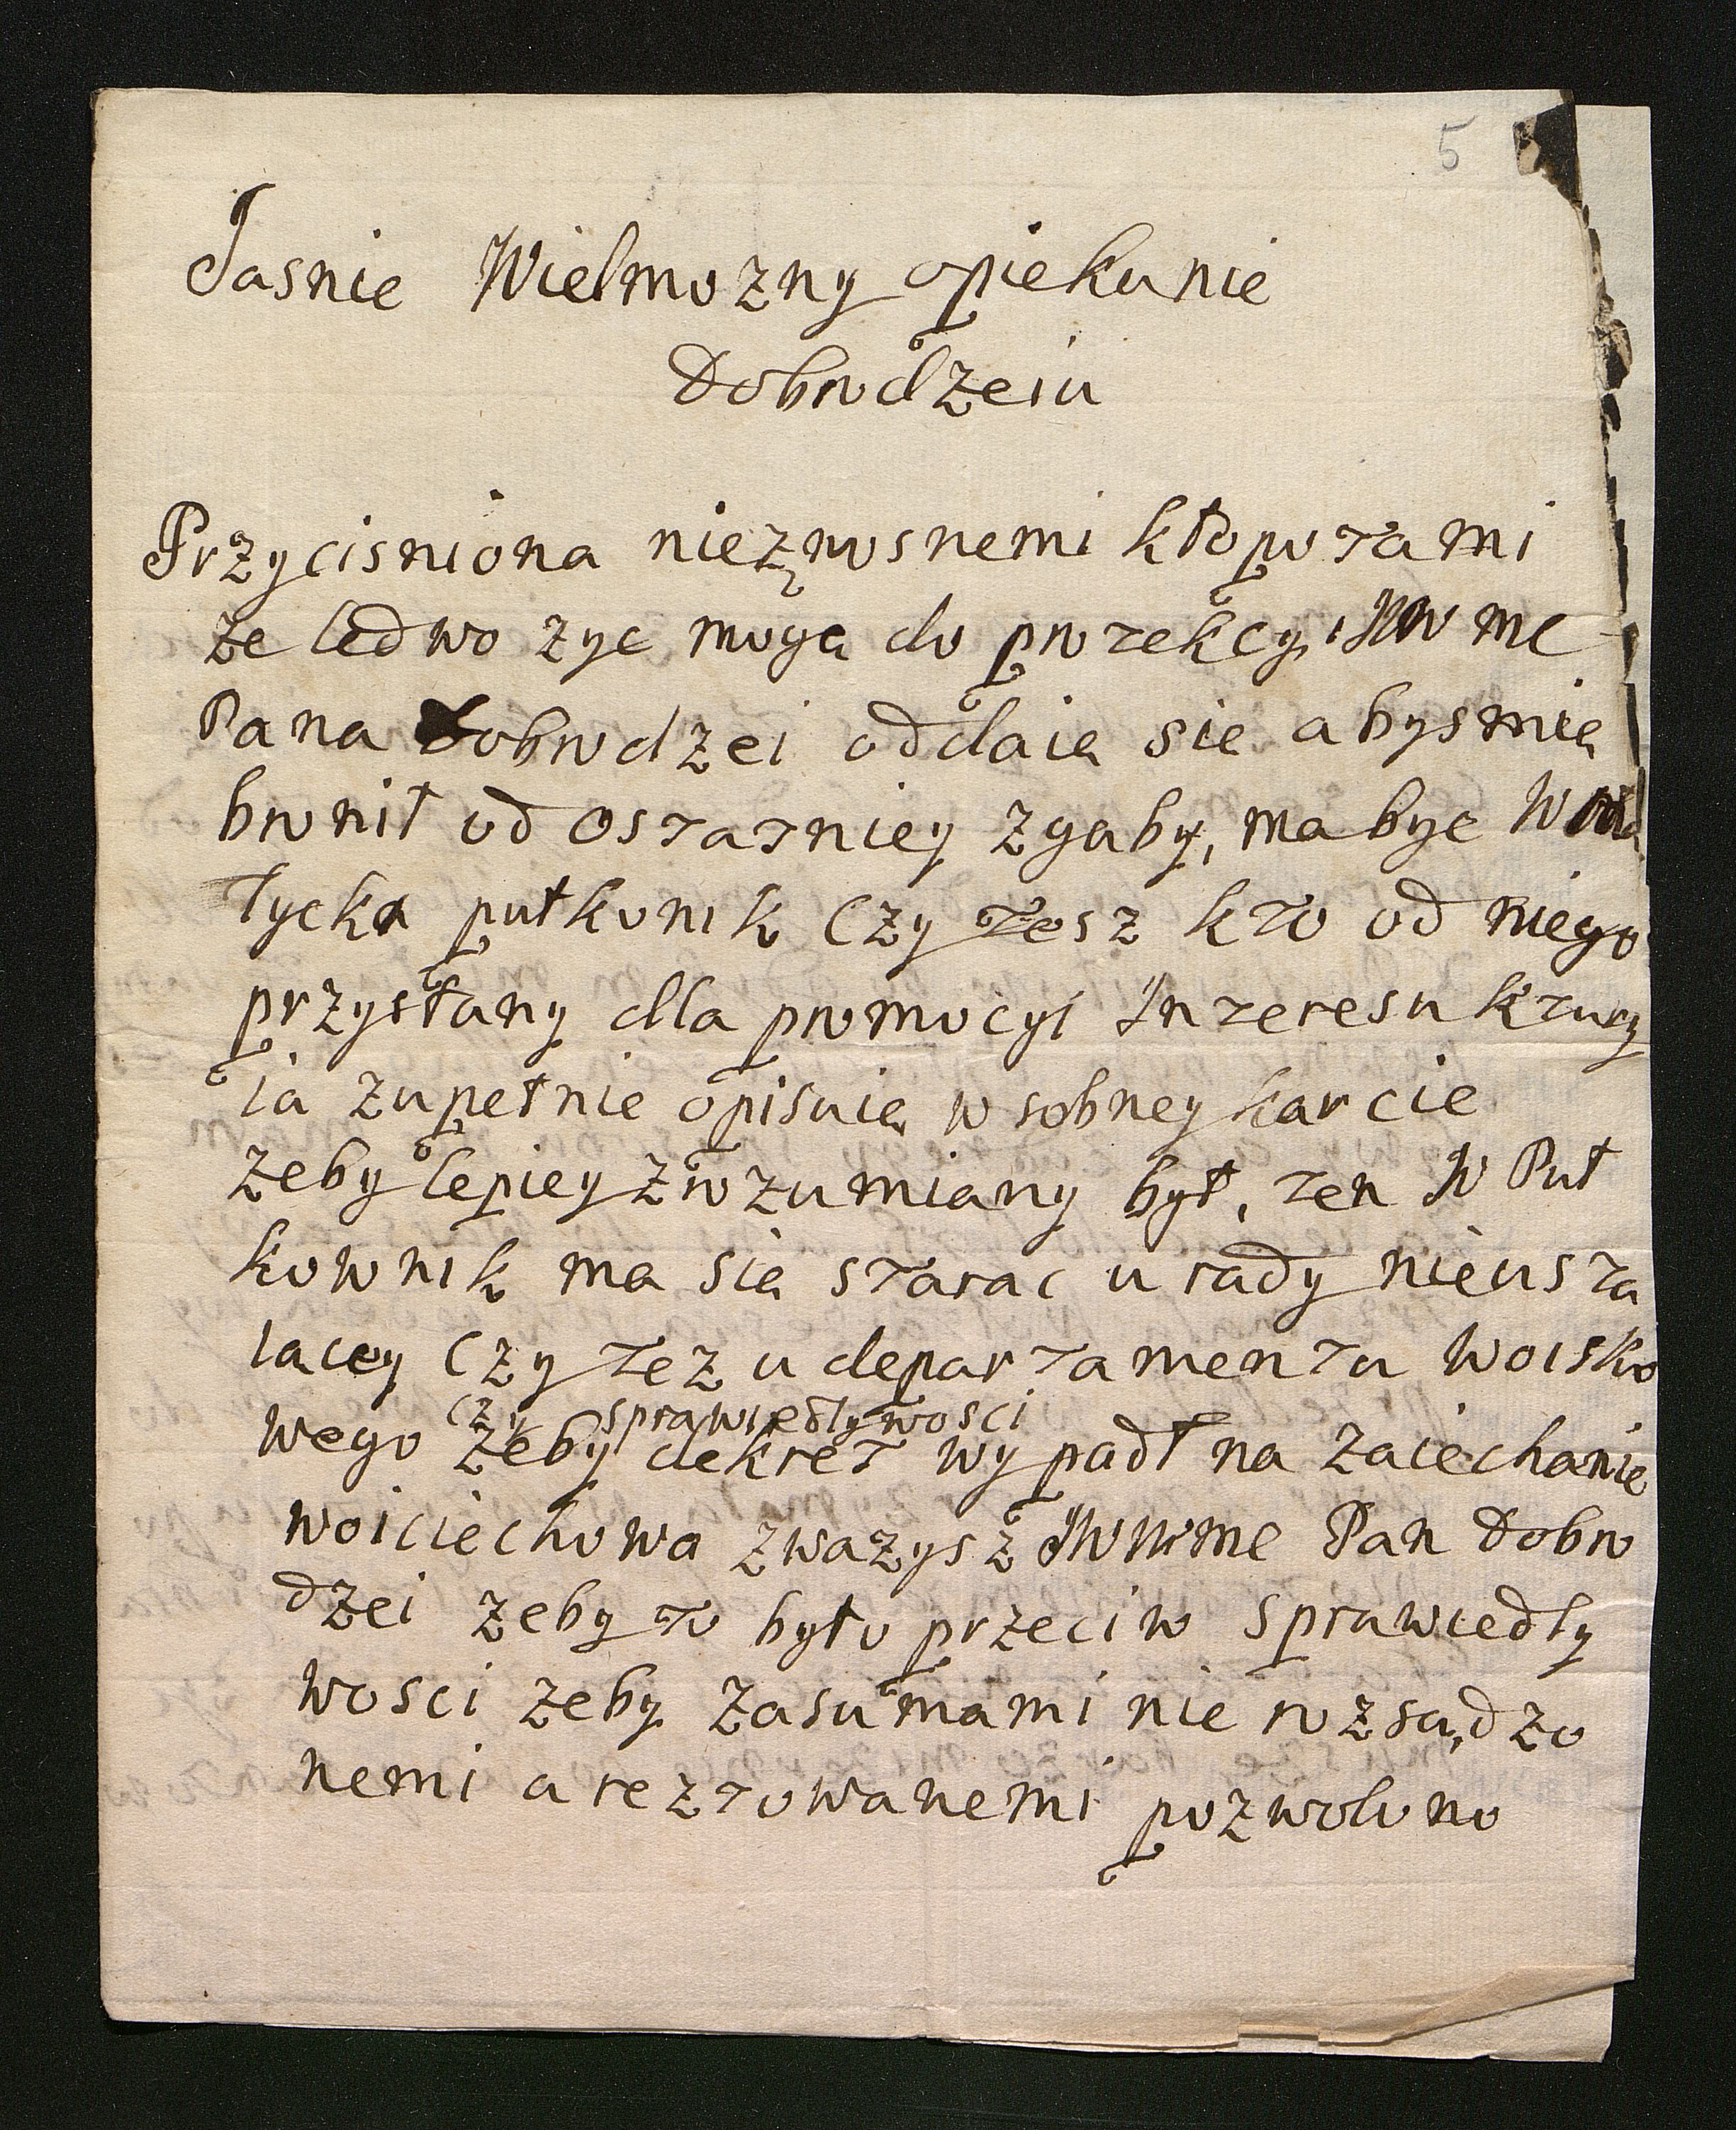 5
Jasnie Wielmozny opiekunie
Dobrodzeiu
Przycisniona nieznosnemi kłopotami
ze ledwo zyc mogę do protekcyi JWW mc
Pana Dobrodzei oddaię sie abysmię
bronił od ostatniey zguby, ma byc W
pułkonik czy tesz kto od niego
przysłany dla promocyi Interesu ktury
ia zupełnie opisuię w sobney karcie
zeby lepiey zrozumiany był, ten W Puł
kownik ma się starac u rady nieusta
iacey czy tez u departamentu woisko
czy sprawiedlywosci
wego zeby dekret wypadł na zaiechanie
woiciechowa zwazysz JWWmc Pan Dobro
dzei zeby to było przeciw sprawiedly
wosci zeby zasumami nie rozsądzo
nemi areztowanemi pozwolono